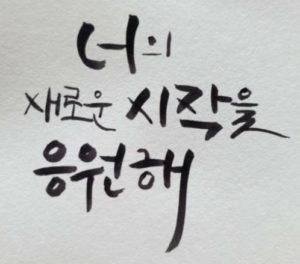 너의
새로운 시작을
응원해